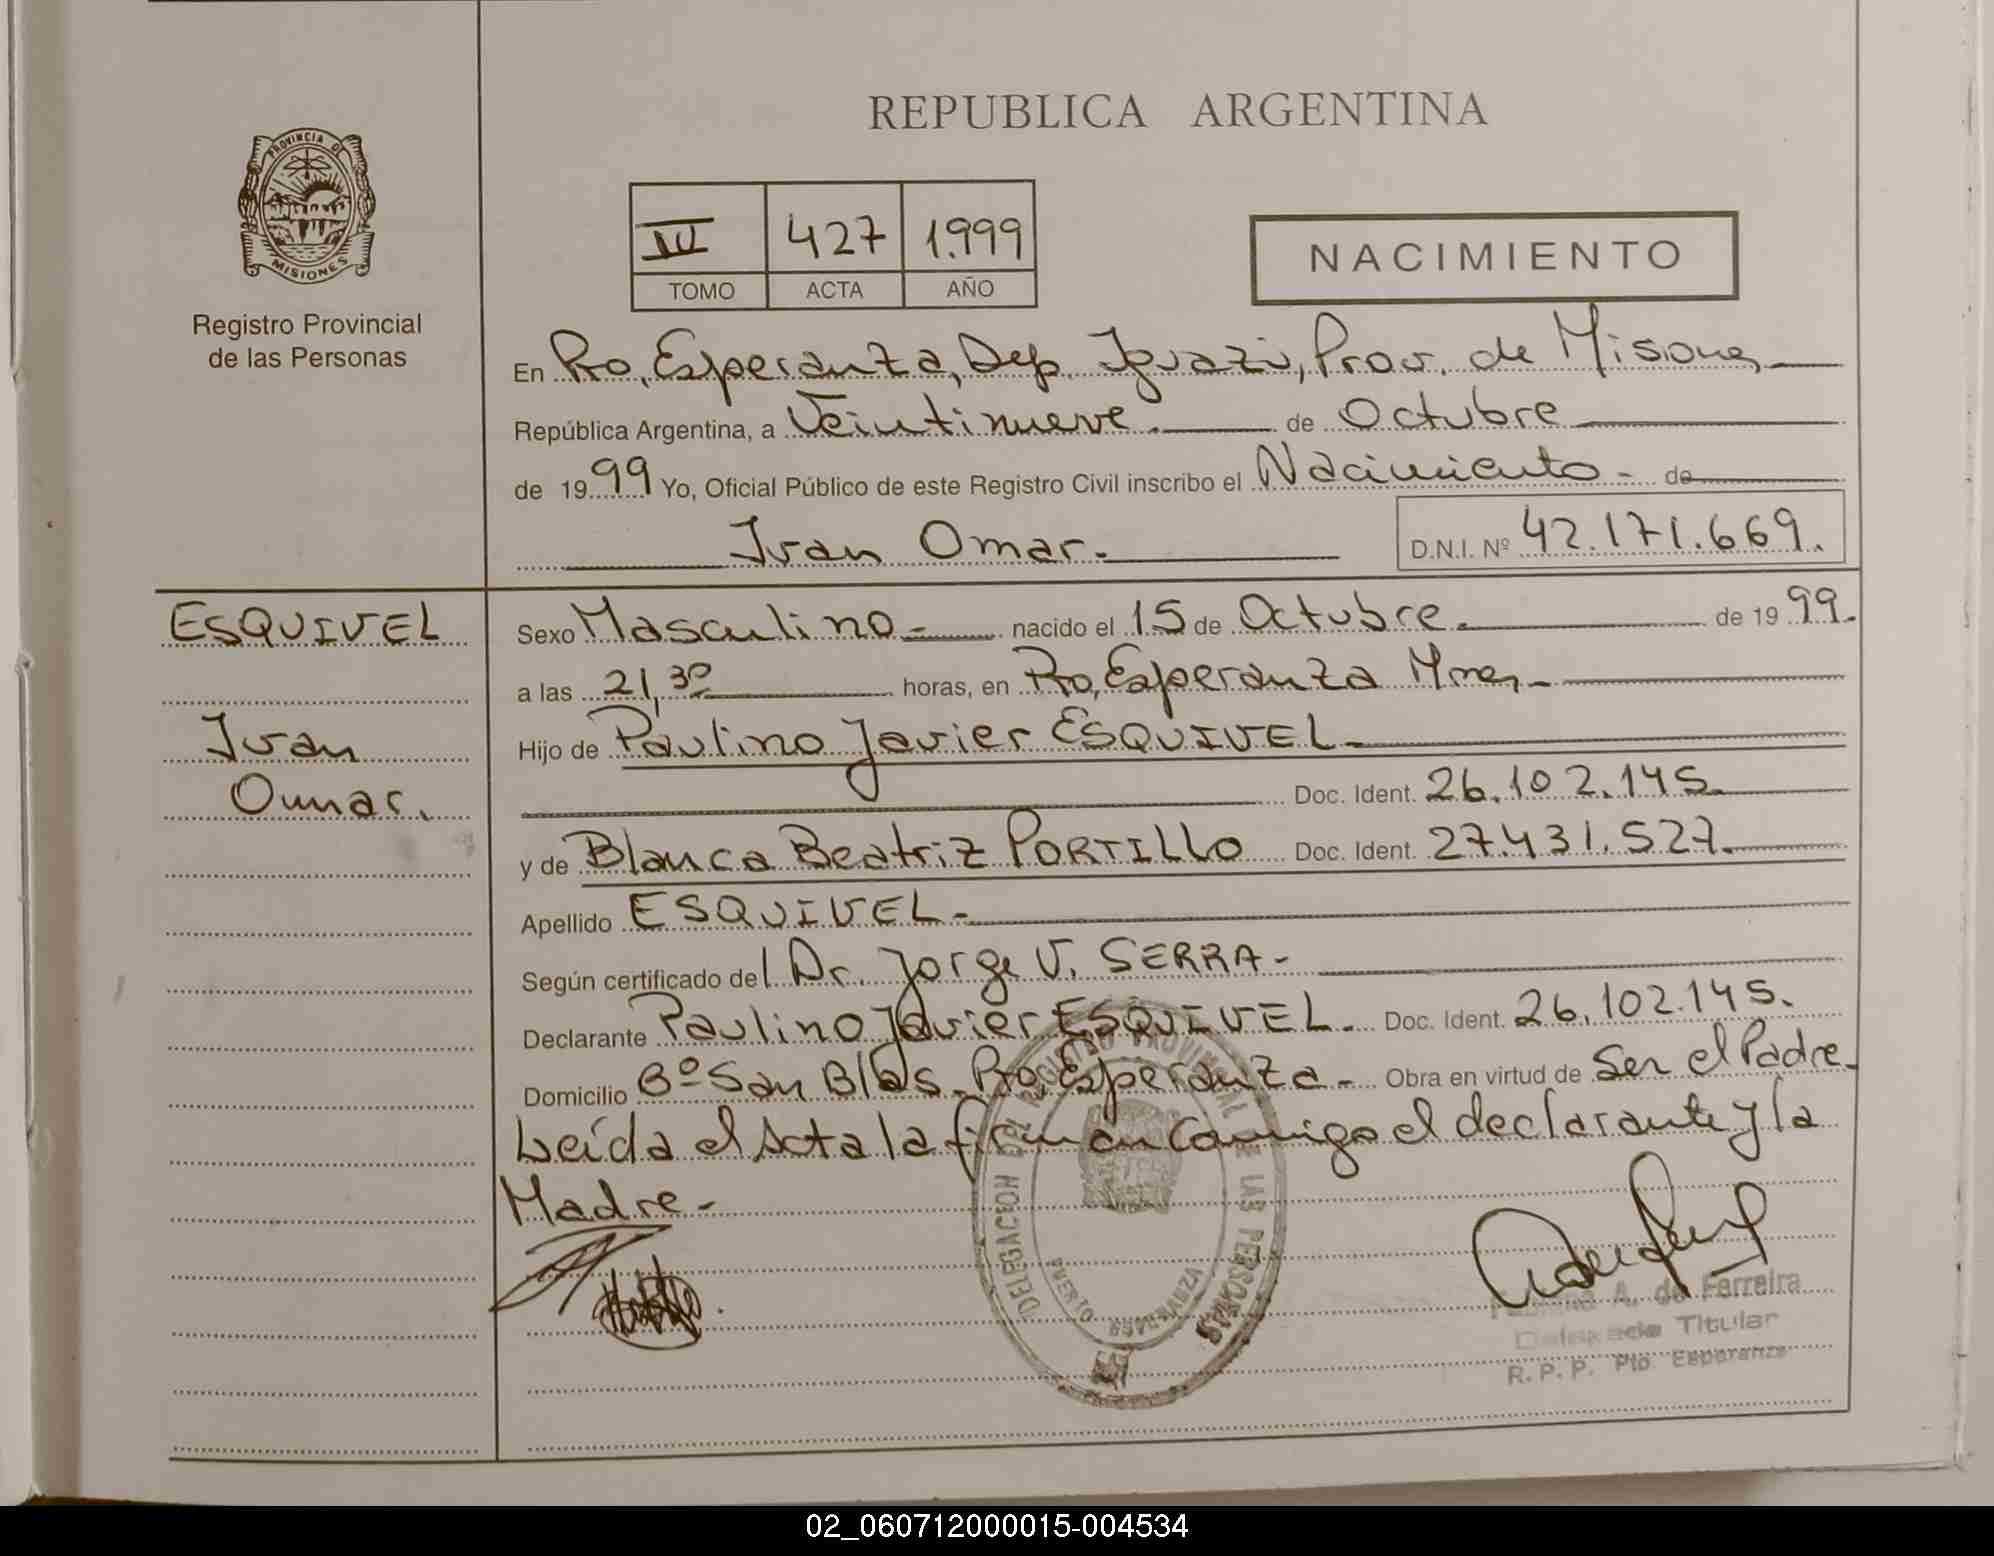 PROVINCIA DE
MISIONES
Registro Provincial
de las Personas
REPUBLICA ARGENTINA
III 427 1.999
TOMO ACTA AÑO
NACIMIENTO
En Pto, Esperanza, Dep. Iguazú, Prov. de Misiones
República Argentina, a Veintinueve.- de Octubre
de 1999 Yo, Oficial Público de este Registro Civil inscribo el Nacimiento - de
Ivan Omar.- D.N.I. Nº 42.171.669.
ESQUIVEL
Ivan
Omar.
Sexo Masculino - nacido el 15 de Octubre. de 1999.
a las 21,30 horas, en Pto, Esperanza Mnes,-
Hijo de Paulino Javier ESQUIVEL-
Doc. Ident. 26.102.145.
y de Blanca Beatriz PORTILLO Doc. Ident. 27.431.527.
Apellido ESQUIVEL-
Según certificado del Dr. Jorge V. SERRA-
Declarante Paulino Javier ESQUIVEL. Doc. Ident. 26.102.145.
Domicilio Bº San Blas. Pto, Esperanza - Obra en virtud de Ser el Padre-
Leída el Acta la firman Conmigo el declarante y la
Madre-
DELEGACION DEL REGISTRO PROVINCIAL DE LAS PERSONAS
PUERTO ESPERANZA
A. de Ferreira
Delegada Titular
R. P. P. Pto Esperanza
02_060712000015-004534